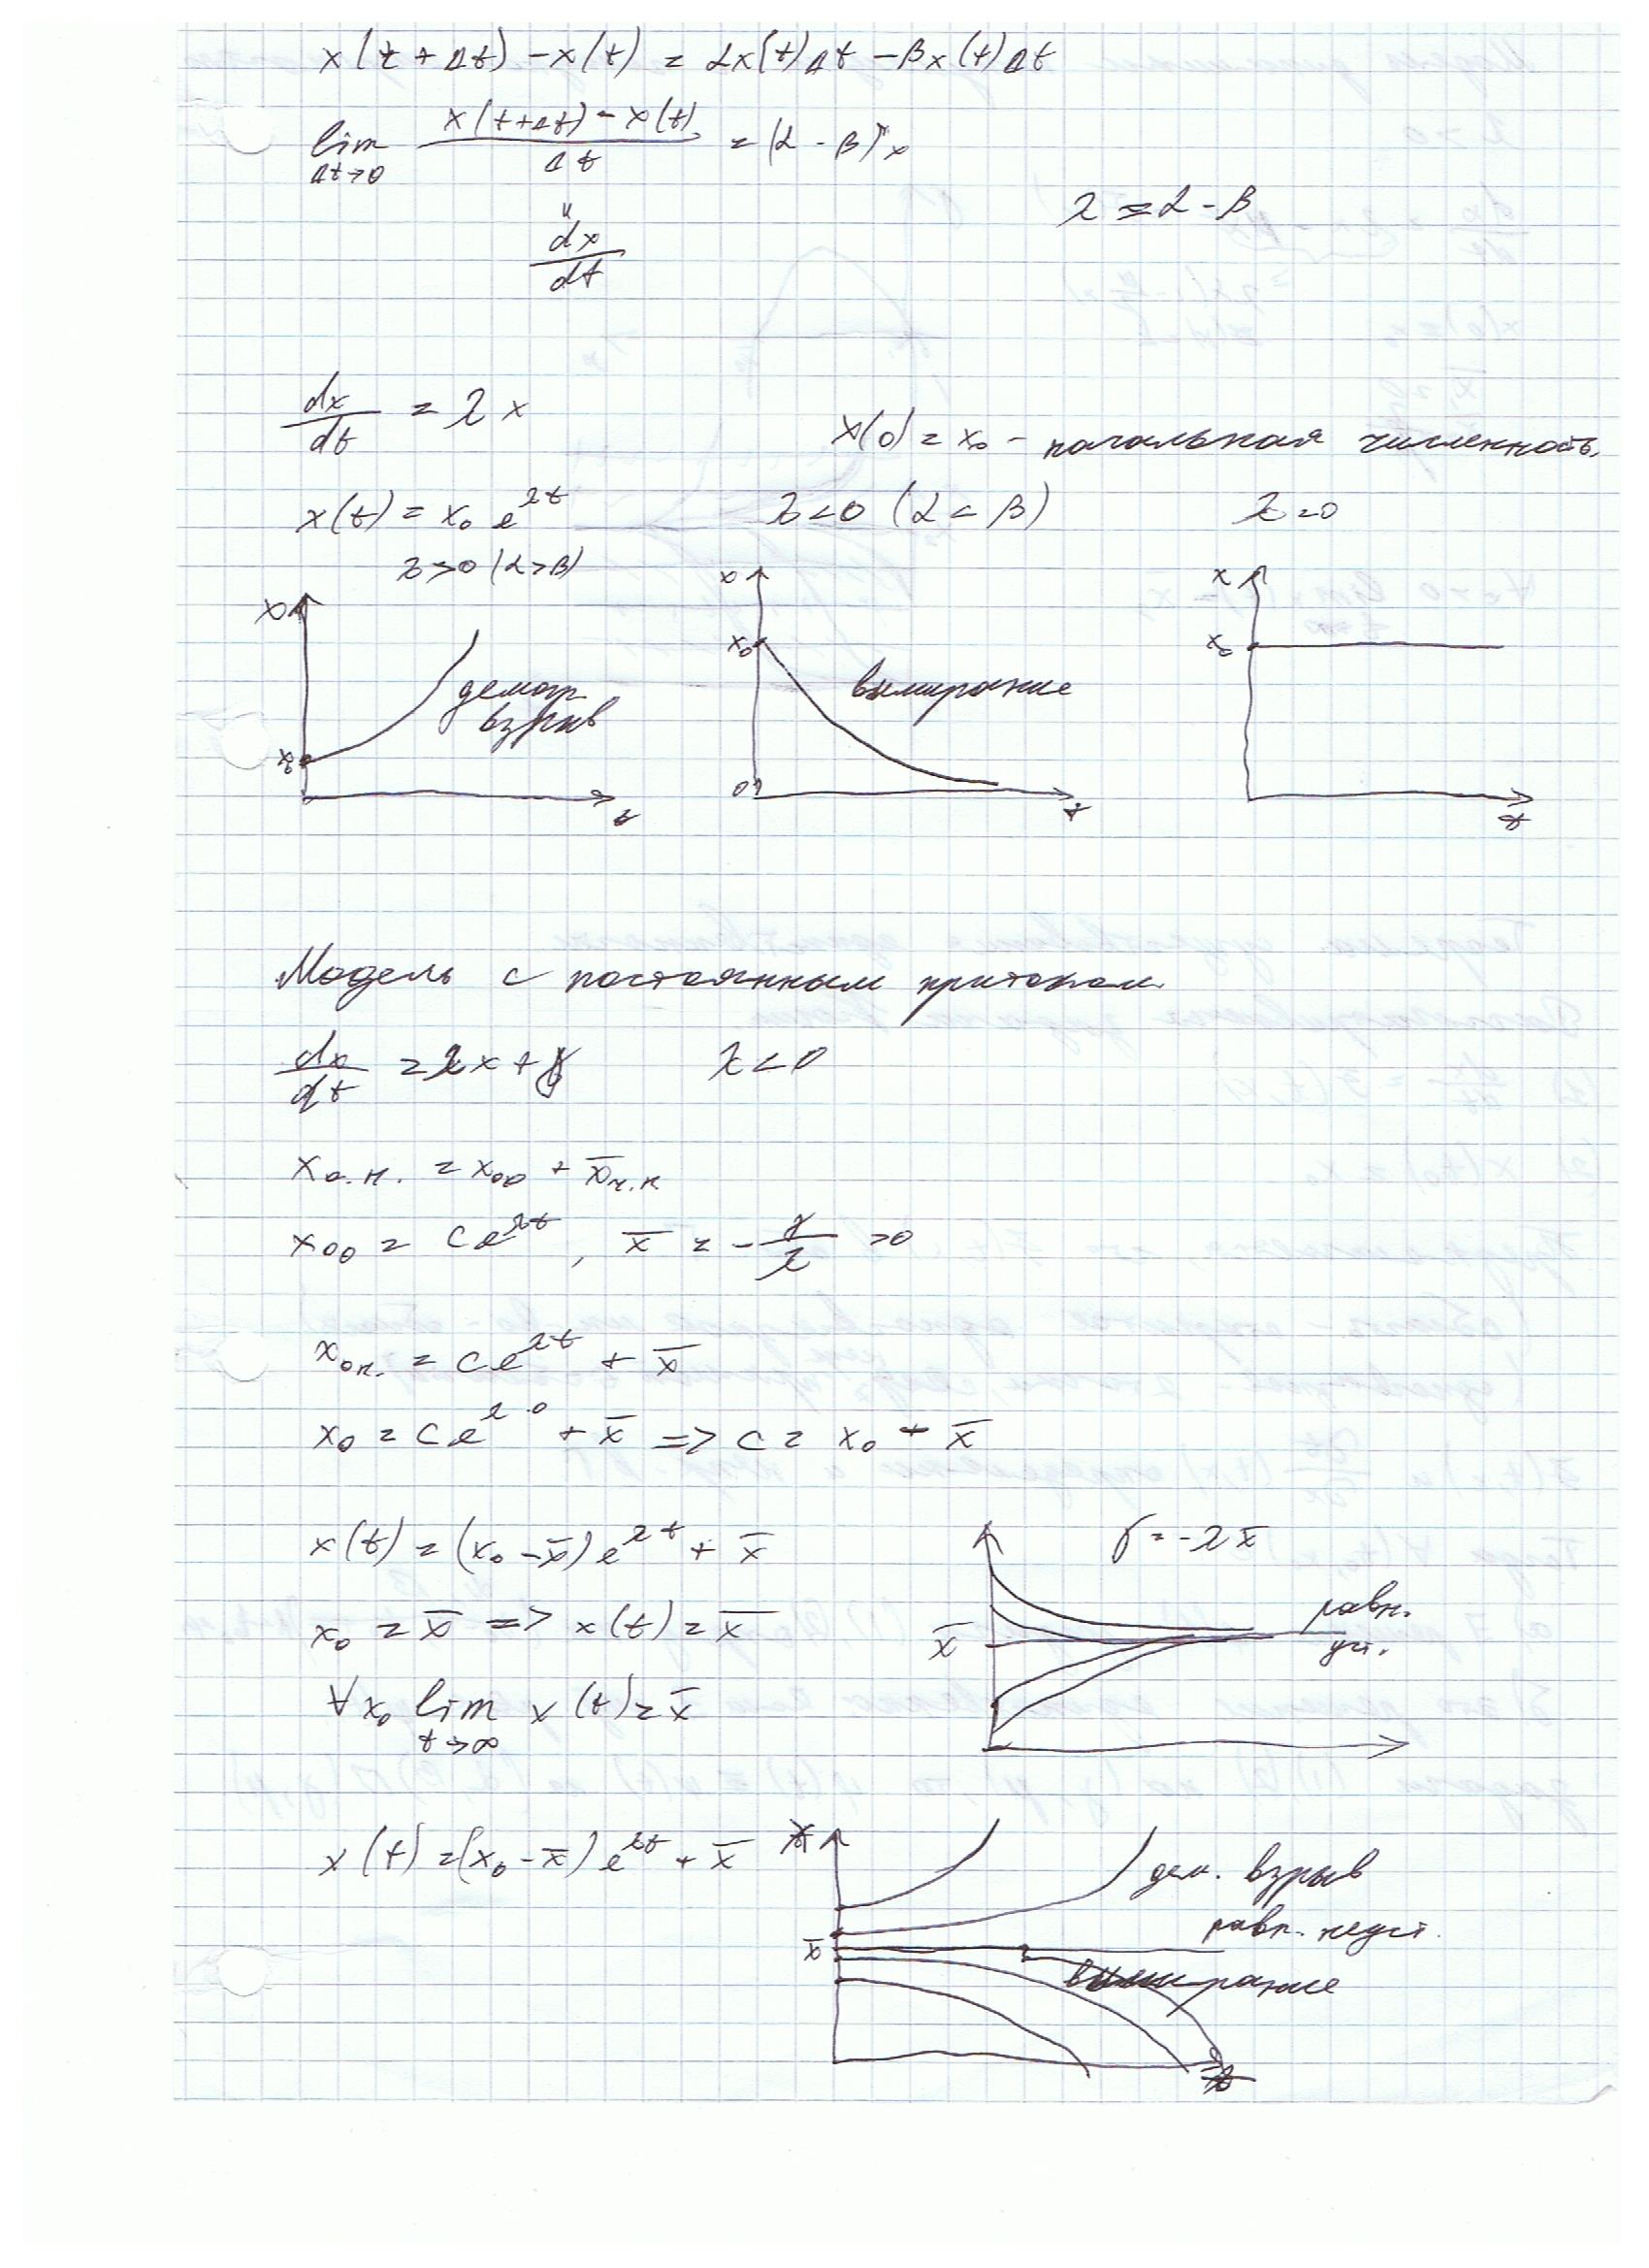 x(t + Δt) - x(t) = αx(t)Δt - βx(t)Δt
lim Δt→0 x(t+Δt) - x(t) / Δt = (α - β)x
λ = α - β
"
dx/dt
dx/dt = λx
x(0) = x₀ - начальная численность.
x(t) = x₀ e^{λt}
λ<0 (α < β)
λ=0
λ>0 (α>β)
x
x₀
t
демогр.
взрыв
x
x₀
0
t
вымирание
x
x₀
t
Модель с постоянным притоком.
dx/dt = λx + γ λ < 0
x о.н. = x оо + x̄ ч.н
x оо = C e^{λt}, x̄ = - γ/λ >0
x он. = C e^{λt} + x̄
x₀ = C e^{λ·0} + x̄ => C = x₀ - x̄
x(t) = (x₀ - x̄) e^{λt} + x̄
γ = -λx̄
x₀ = x̄ => x(t) = x̄
x̄
равн.
уст.
∀x₀ lim t→∞ x(t) = x̄
x(t) = (x₀ - x̄) e^{λt} + x̄
x
x̄
дем. взрыв
равн. неуст.
вымирание
t